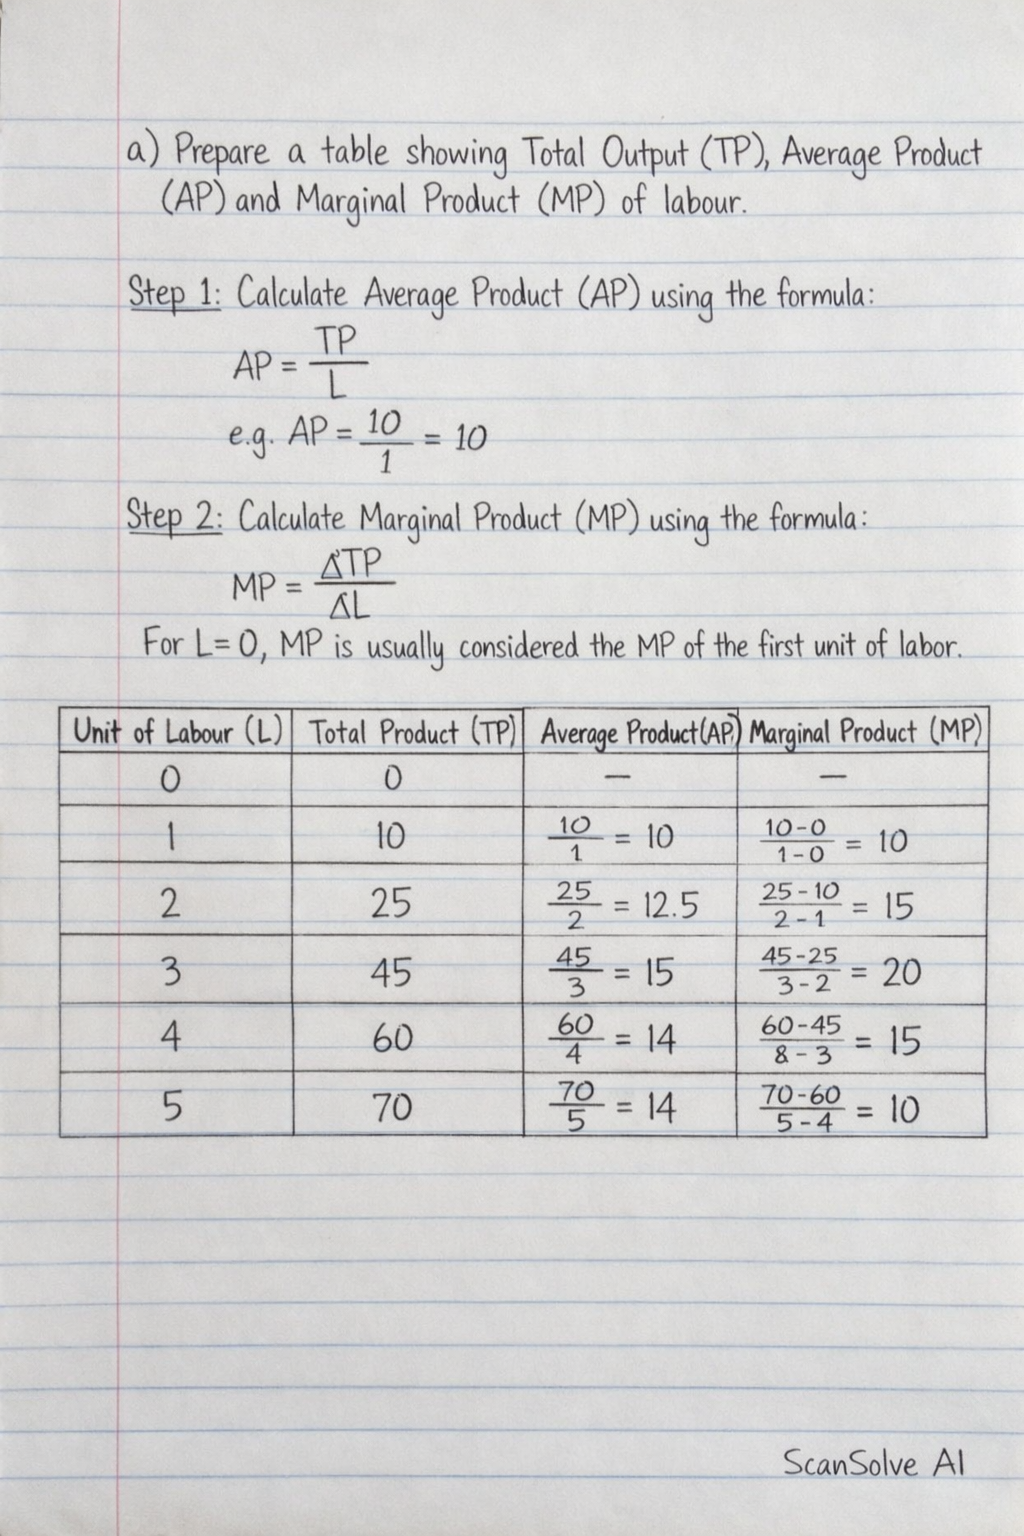 a) Prepare a table showing Total Output (TP), Average Product
(AP) and Marginal Product (MP) of labour.
Step 1: Calculate Average Product (AP) using the formula:
AP = TP/L
e.g. AP = 10/1 = 10
Step 2: Calculate Marginal Product (MP) using the formula:
MP = ΔTP/ΔL
For L= 0, MP is usually considered the MP of the first unit of labor.
Unit of Labour (L) Total Product (TP) Average Product (AP) Marginal Product (MP)
0 0 — —
1 10 10/1 = 10 10-0/1-0 = 10
2 25 25/2 = 12.5 25-10/2-1 = 15
3 45 45/3 = 15 45-25/3-2 = 20
4 60 60/4 = 14 60-45/8-3 = 15
5 70 70/5 = 14 70-60/5-4 = 10
ScanSolve AI